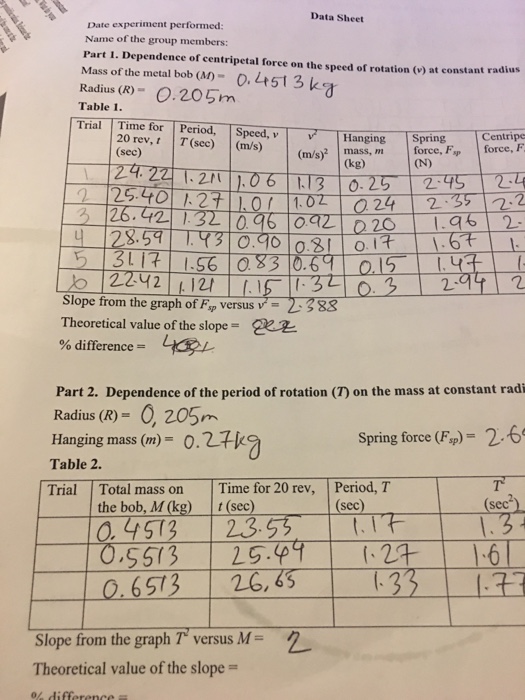 Data Sheet
Date experiment performed:
Name of the group members:
Part 1. Dependence of centripetal force on the speed of rotation (v) at constant radius
Mass of the metal bob (M) = 0.4513 kg
Radius (R) = 0.205m
Table 1.
Trial Time for 20 rev, t (sec) Period, T (sec) Speed, v (m/s) v² (m/s)² Hanging mass, m (kg) Spring force, Fsp (N) Centripe force, F
1 24.22 1.211 1.06 1.13 0.25 2.45 2.4
2 25.40 1.27 1.01 1.02 0.24 2.35 2.2
3 26.42 1.32 0.96 0.92 0.20 1.96 2.
4 28.59 1.43 0.90 0.81 0.17 1.67 1.
5 31.17 1.56 0.83 0.69 0.15 1.47 1.
6 22.42 1.121 1.15 1.32 0.3 2.94 2
Slope from the graph of Fsp versus v² = 2.388
Theoretical value of the slope =
% difference =
Part 2. Dependence of the period of rotation (T) on the mass at constant radi
Radius (R) = 0,205m
Hanging mass (m) = 0.27kg Spring force (Fsp) = 2.6
Table 2.
Trial Total mass on the bob, M (kg) Time for 20 rev, t (sec) Period, T (sec) T² (sec²)
0.4513 23.55 1.17 1.3
0.5513 25.44 1.27 1.61
0.6513 26,65 1.33 1.77
Slope from the graph T² versus M = 2
Theoretical value of the slope =
% difference =